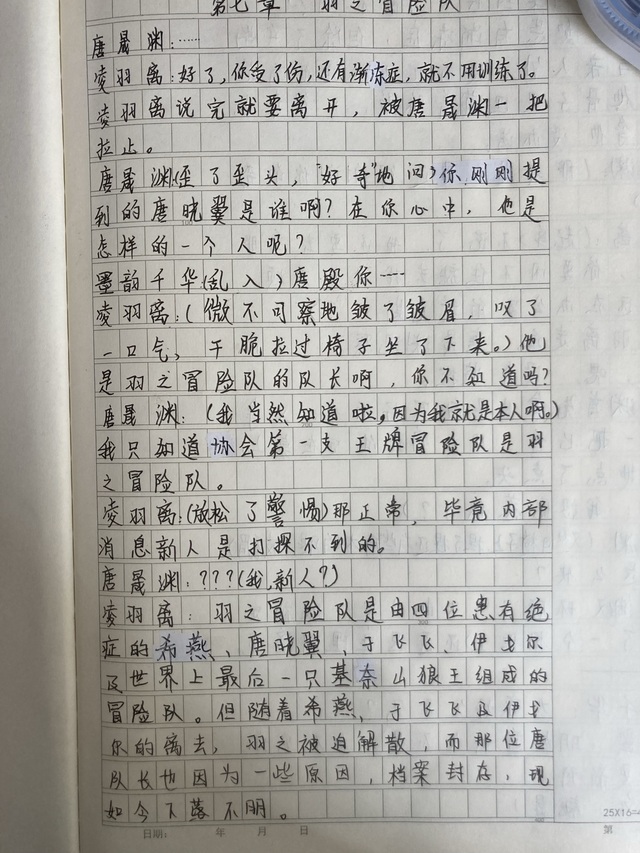 第七章 羽之冒险队
唐晟渊:……
凌羽离:好了,你受了伤,还有渐冻症,就不用训练了。
凌羽离说完就要离开,被唐晟渊一把
拉止。
唐晟渊(歪了歪头,"好奇"地问)你刚刚提
到的唐晓翼是谁啊?在你心中,他是
怎样的一个人呢?
墨韵千华(乱入)唐殿你……
凌羽离:(微不可察地皱了皱眉,叹了
一口气,干脆拉过椅子坐了下来。)他
是羽之冒险队的队长啊,你不知道吗?
唐晟渊:(我当然知道啦,因为我就是本人啊。)
我只知道协会第一支王牌冒险队是羽
之冒险队。
凌羽离:(放松了警惕)那正常,毕竟内部
消息新人是打探不到的。
唐晟渊:???(我,新人?)
凌羽离:羽之冒险队是由四位患有绝
症的希燕、唐晓翼、于飞飞、伊戈尔
及世界上最后一只基奈山狼王组成的
冒险队。但随着希燕、于飞飞及伊戈
尔的离去,羽之被迫解散,而那位唐
队长也因为一些原因,档案封存,现
如今下落不明。
25X16=4
日期: 年 月 日 第